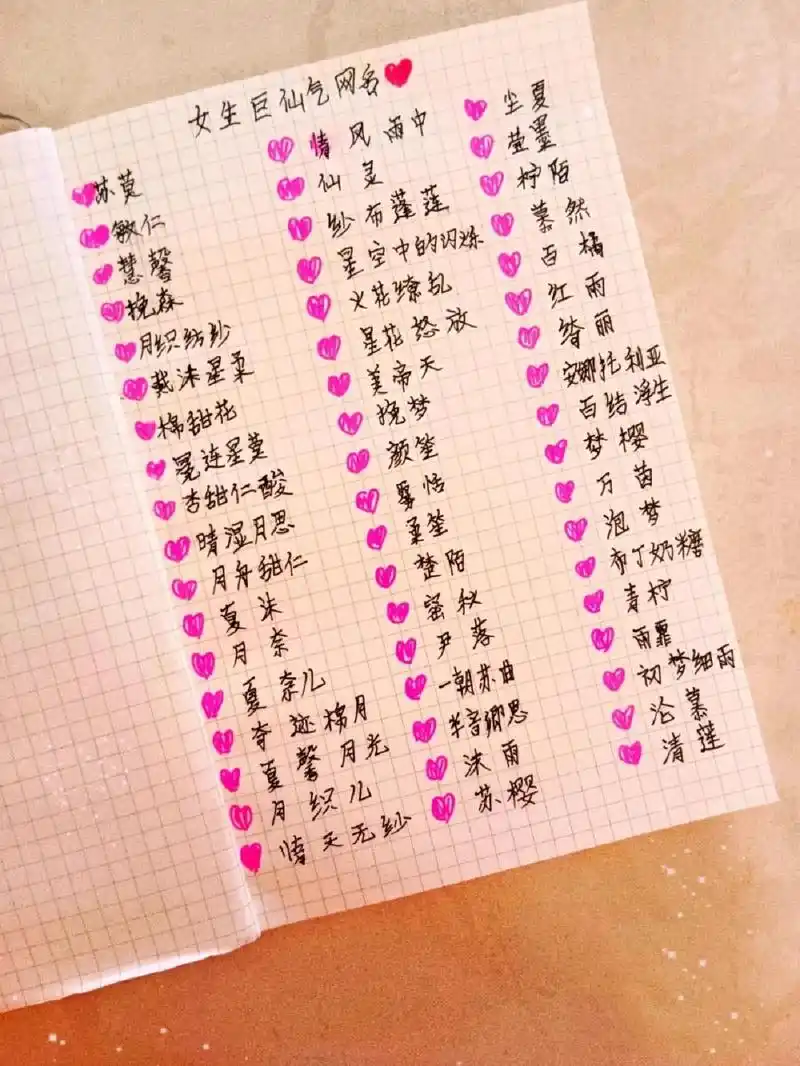 女生巨仙气网名
苏莫
敏仁
慧馨
挽森
月织纺纱
戴沫星柔
棉甜花
冕连星蔓
杏甜仁酸
晴湿月思
月舟甜仁
夏沫
月奈
夏奈儿
夸迹棉月
夏馨月光
月织儿
情天无纱
情风雨中
仙灵
纱布蓬莲
星空中的闪烁
火花缭乱
星花怒放
美帝天
挽梦
颜笙
雾恬
柔笙
楚陌
蜜秘
尹落
一朝苏曲
半音卿思
沫雨
苏樱
尘夏
萤墨
柠陌
慕然
百橘
红雨
绺丽
安娜托利亚
百结浮生
梦樱
万茵
泡梦
布丁奶糖
青柠
雨霏
初梦细雨
沦慕
清莲